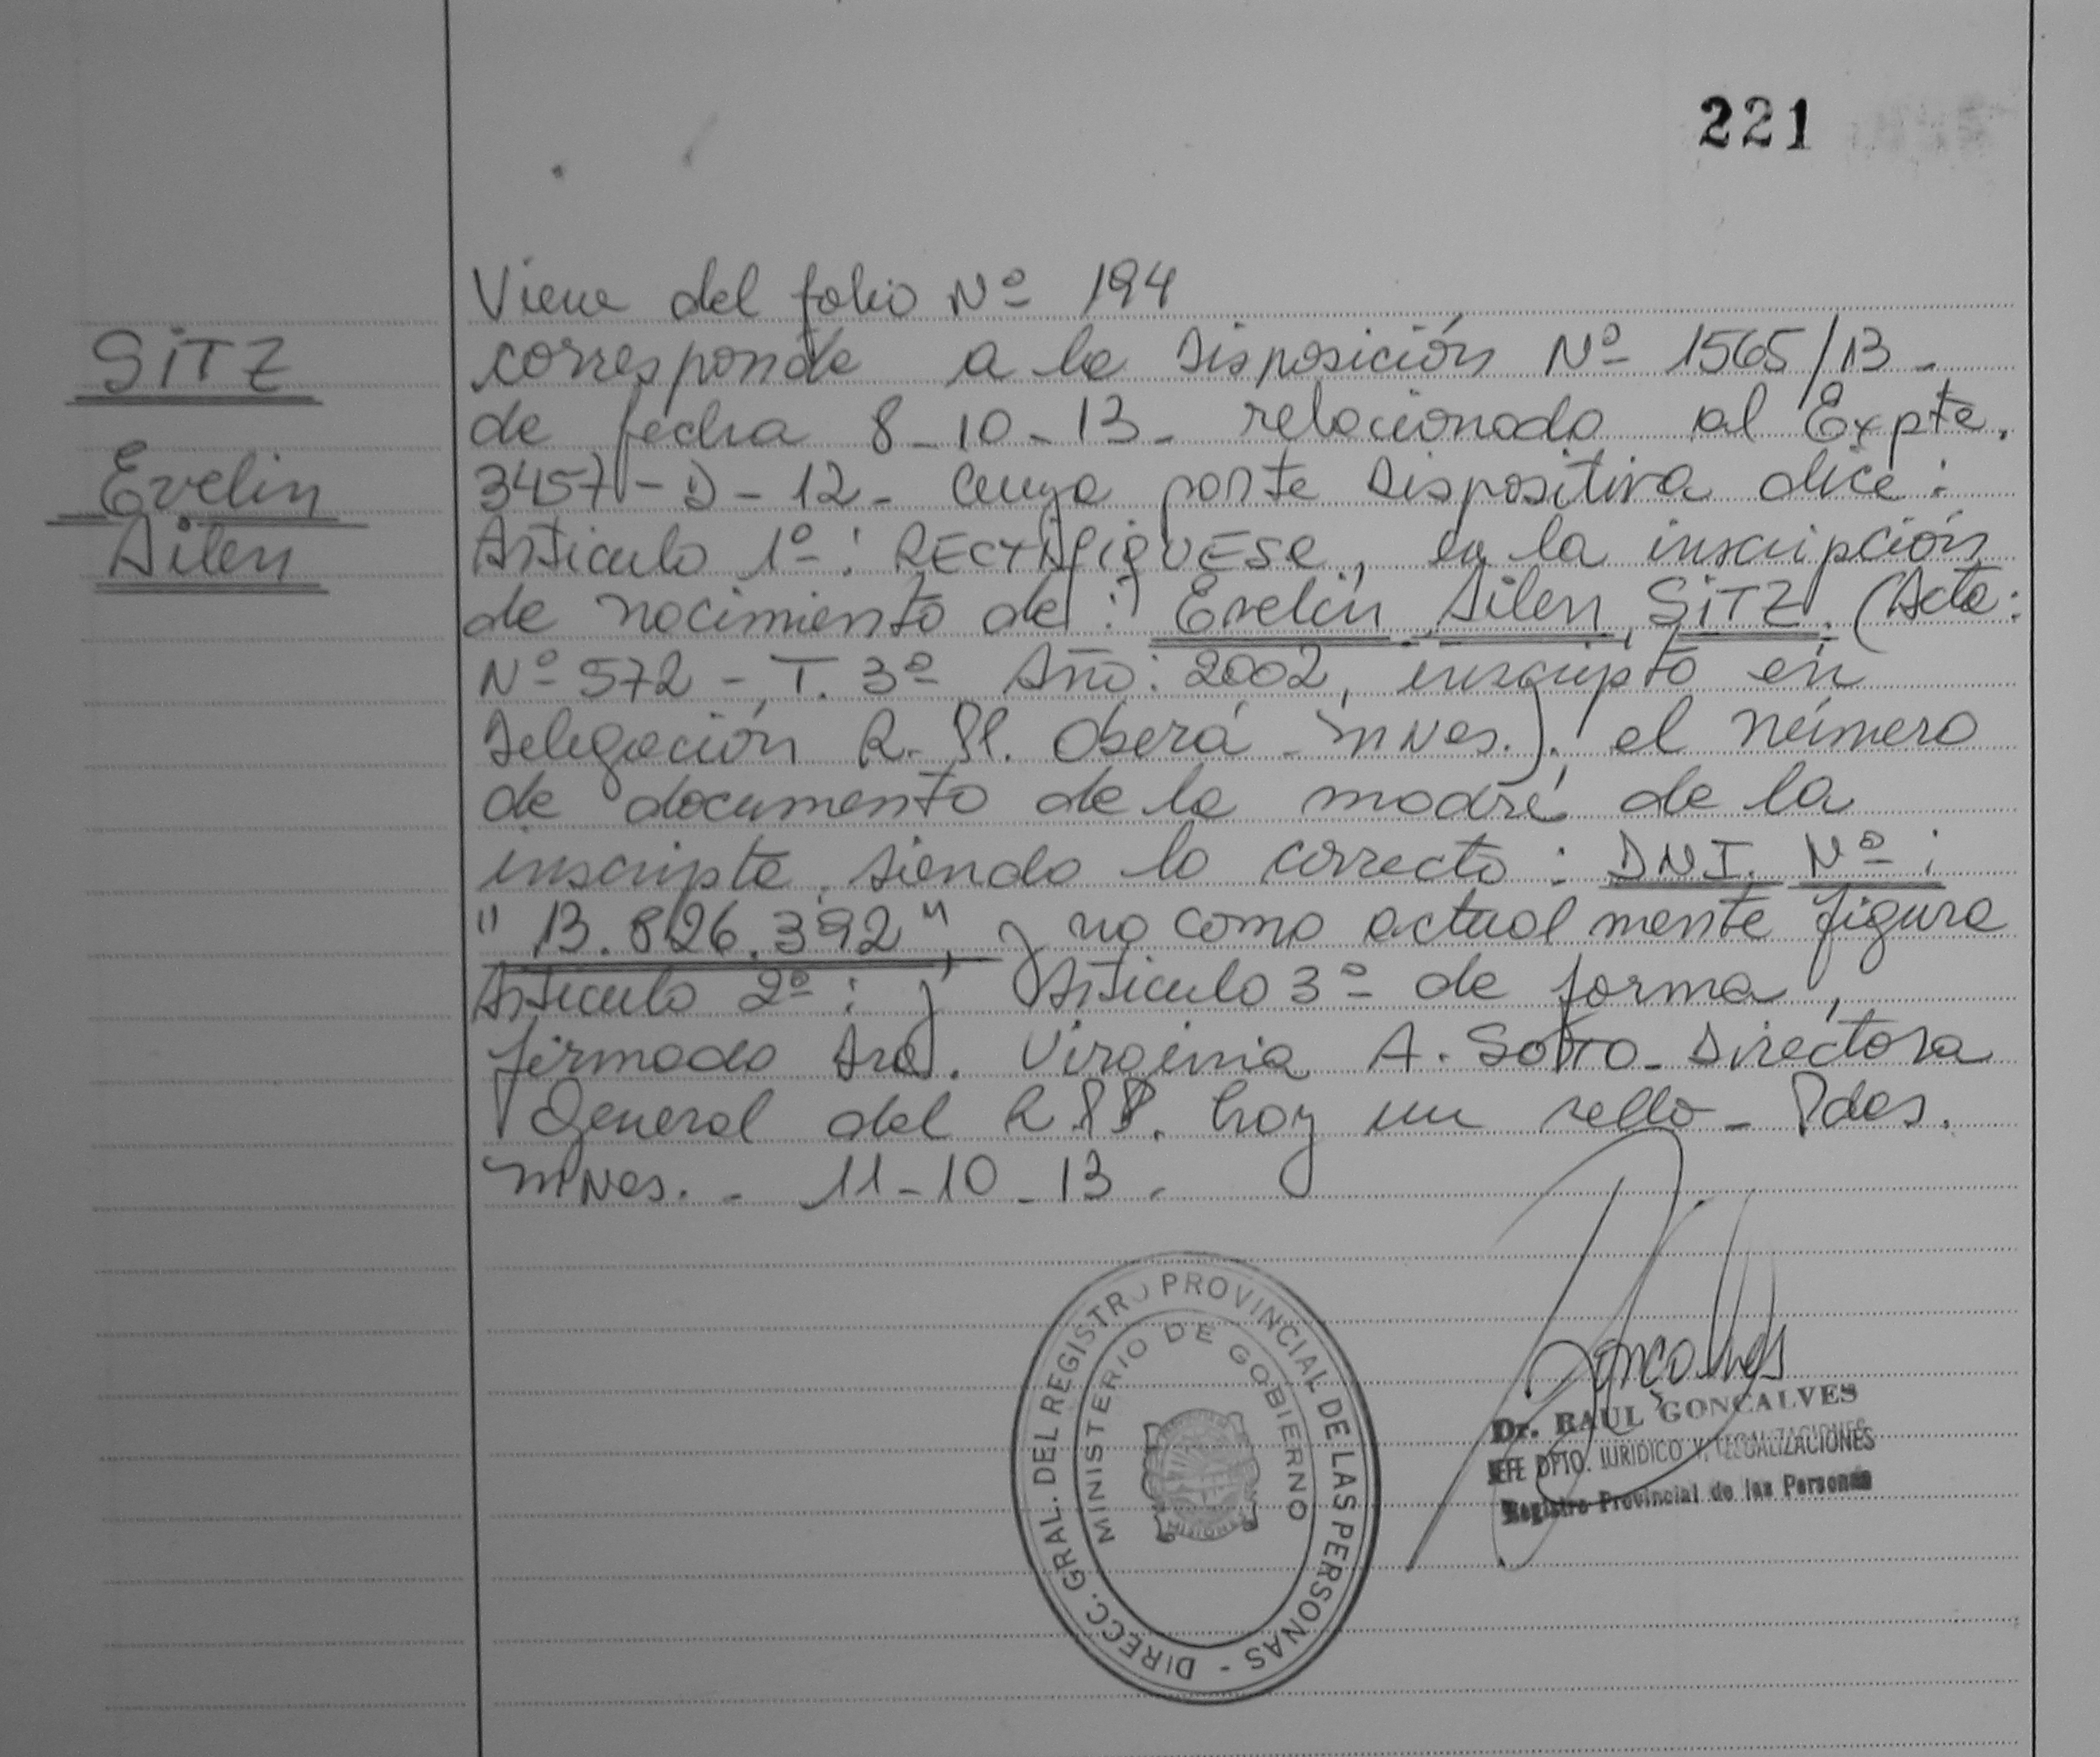 221
SiTZ
Evelin
Ailen
Viene del folio Nº 194
corresponde a la Disposición Nº 1565/13 -
de fecha 8-10-13- relacionado al Expte.
3457-D-12- cuya parte Dispositiva dice:
Articulo 1º: RECTIFIQUESE, en la inscripción
de nacimiento de: Evelin Ailen SiTZ. (Acta:
Nº 572 - T. 3º Año: 2002, inscripta en
Delegación R. Pl. Oberá - mnes.). el número
de documento de la madre de la
inscripta, siendo lo correcto: DNI. Nº:
"13.826.392", y no como actualmente figura
Articulo 2º: y Articulo 3º de forma,
firmado Dra. Virginia A. Sotto - Directora
General del R.P.P. hay un sello - Pdas.
mnes. - 11-10-13.
DIRECC. GRAL. DEL REGISTRO PROVINCIAL DE LAS PERSONAS -
MINISTERIO DE GOBIERNO
MISIONES
Gonçalves
Dr. RAUL GONCALVES
JEFE DPTO. JURIDICO Y LEGALIZACIONES
Registro Provincial de las Personas